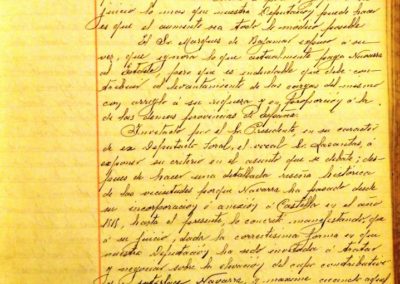 juicio lo mas que nuestra Diputación puede hacer
es que el aumento sea todo lo módico posible
El Sr Marques de Bajamar expuso á su
vez, que ignora lo que actualmente paga Navarra
al Estado, pero que es indudable que debe con-
tribuir al levantamiento de las cargas del mismo
con arreglo á su riqueza y en proporcion á la
de las demas provincias de España.
Invitado por el Sr Presidente, en su caracter
de ex Diputado foral, el vocal Sr á
exponer su criterio en el asunto que se debate; des-
pues de hacer una detallada reseña histórica
de las vicisitudes porque Navarra ha pasado desde
su incorporacion ó anexion á Castilla en el año
hasta el presente, lo concretó manifestando, que
á su juicio, dada la correctisima forma en que
nuestra Diputación ha sido invitada á tratar
y negociar sobre la elevacion del cupo contributivo
Navarra, y maxime cuando aquel